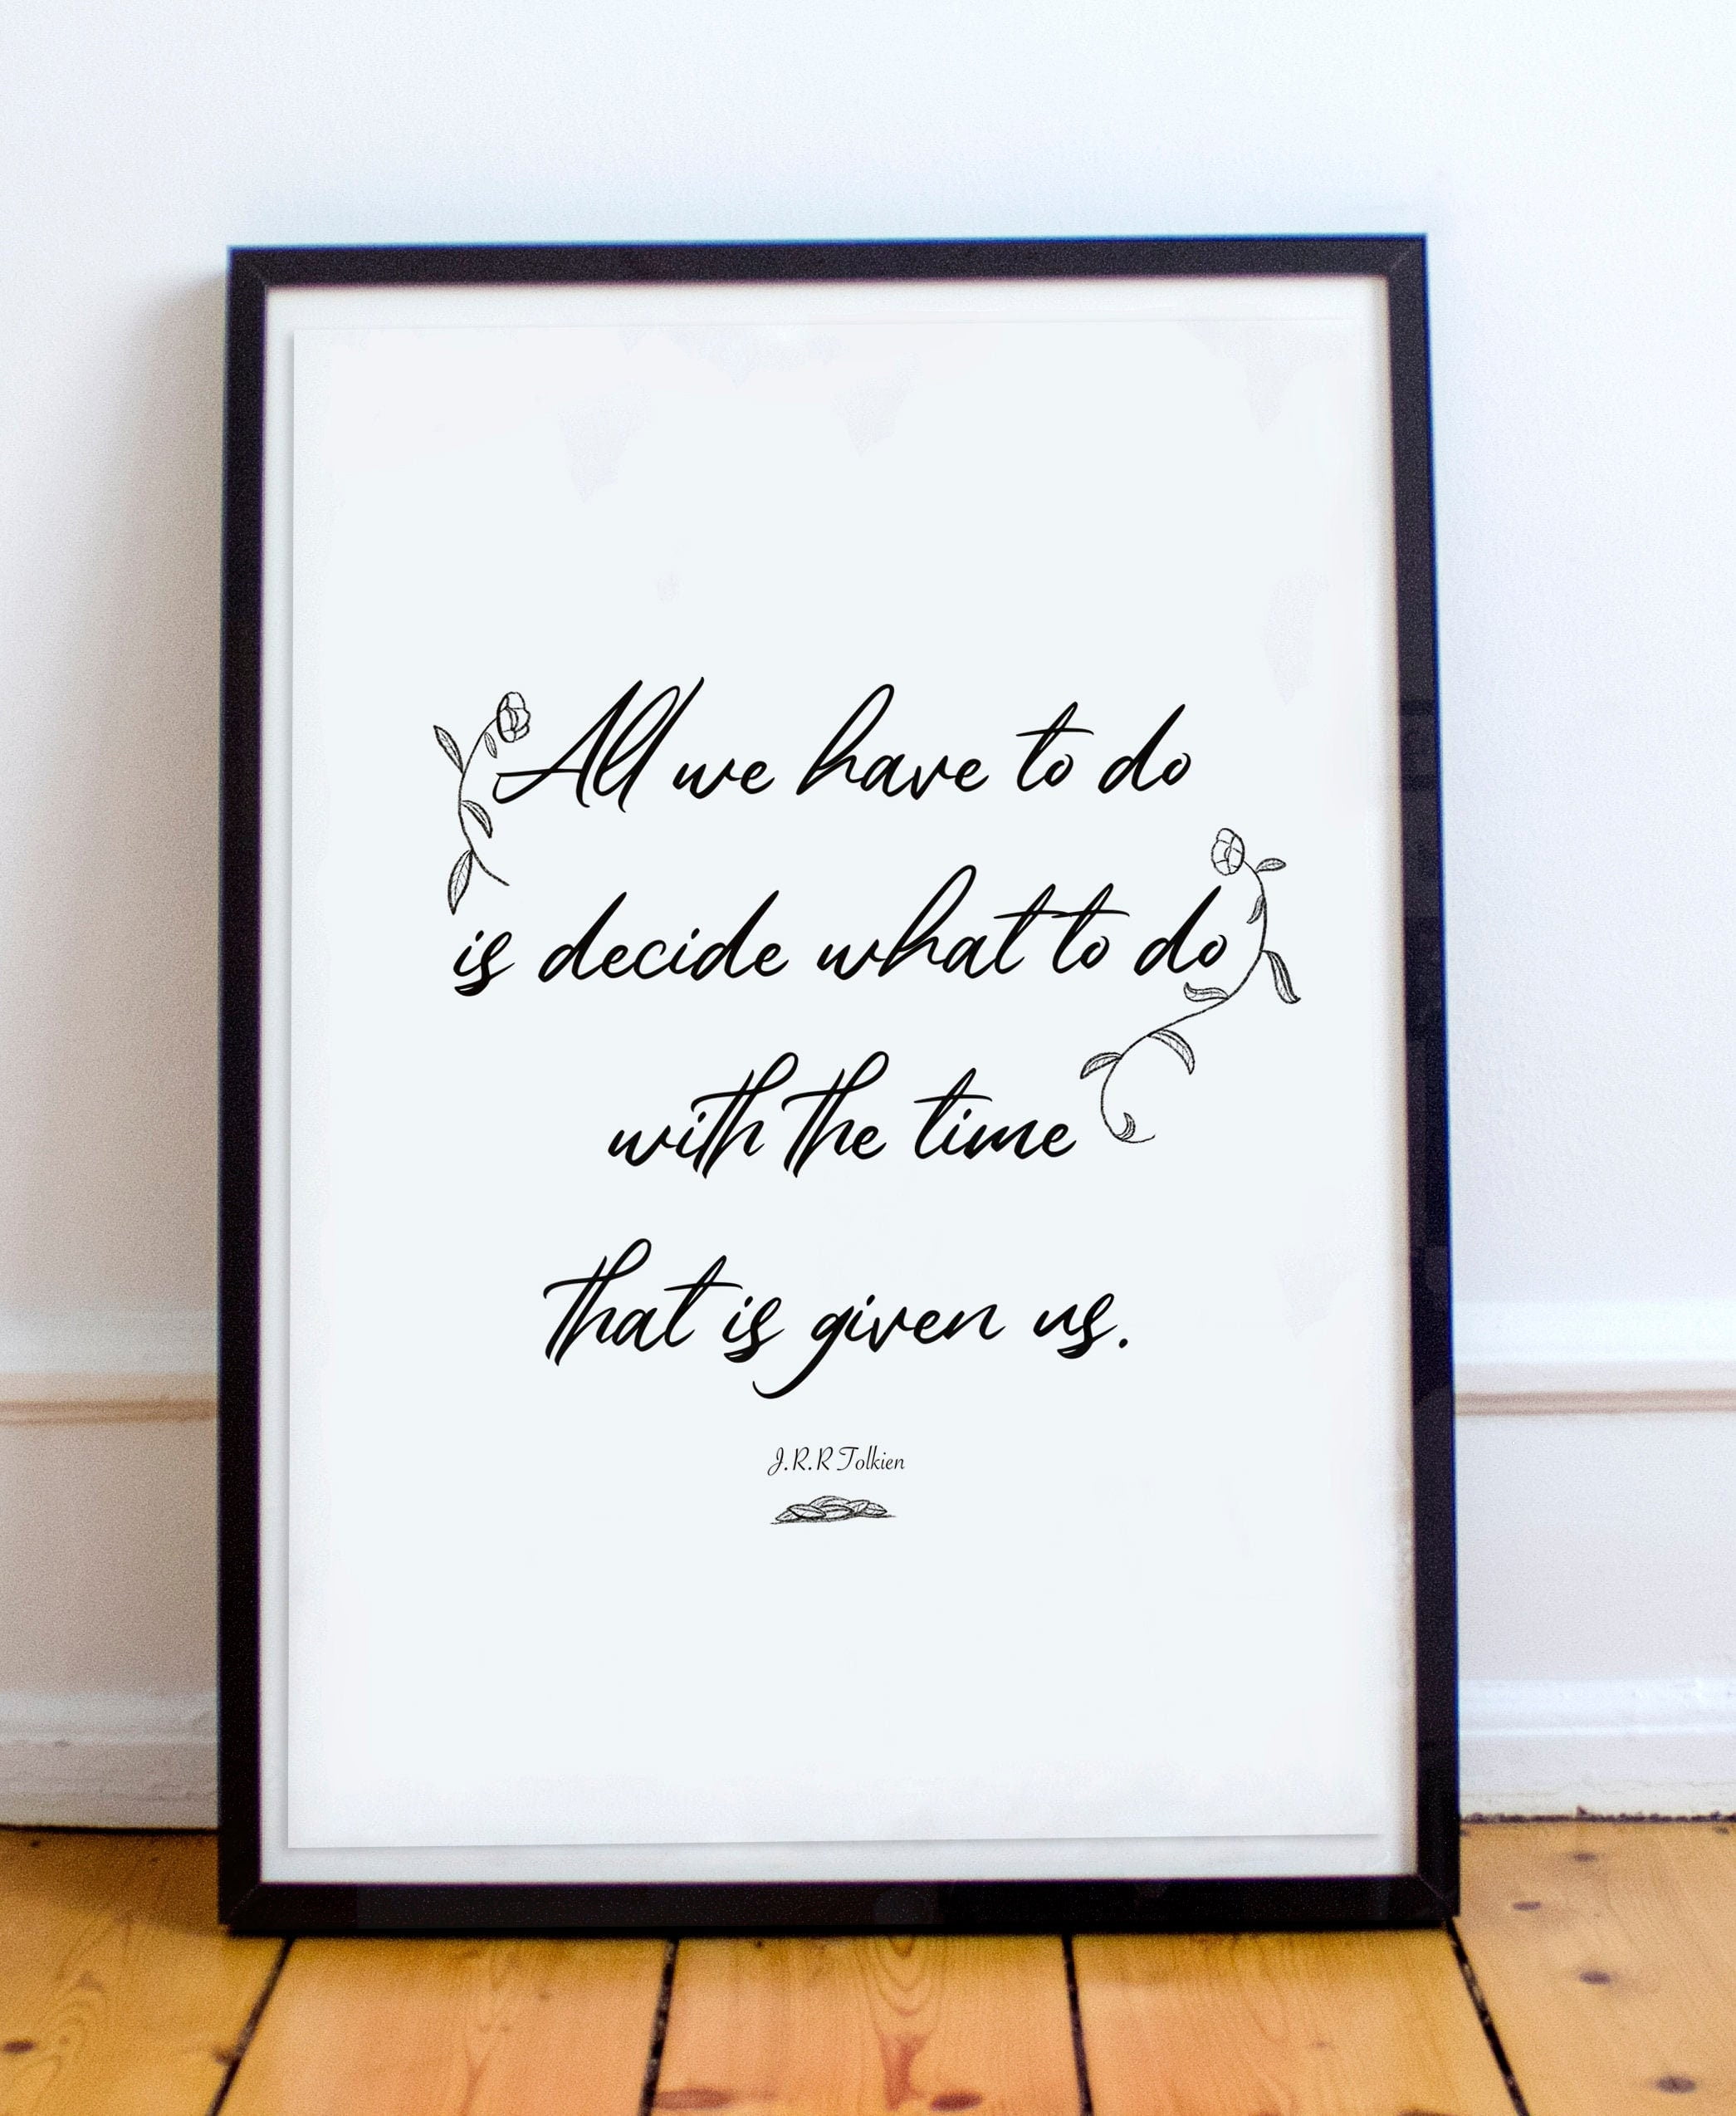 All we have to do
is decide what to do
with the time
that is given us.
J.R.R Tolkien